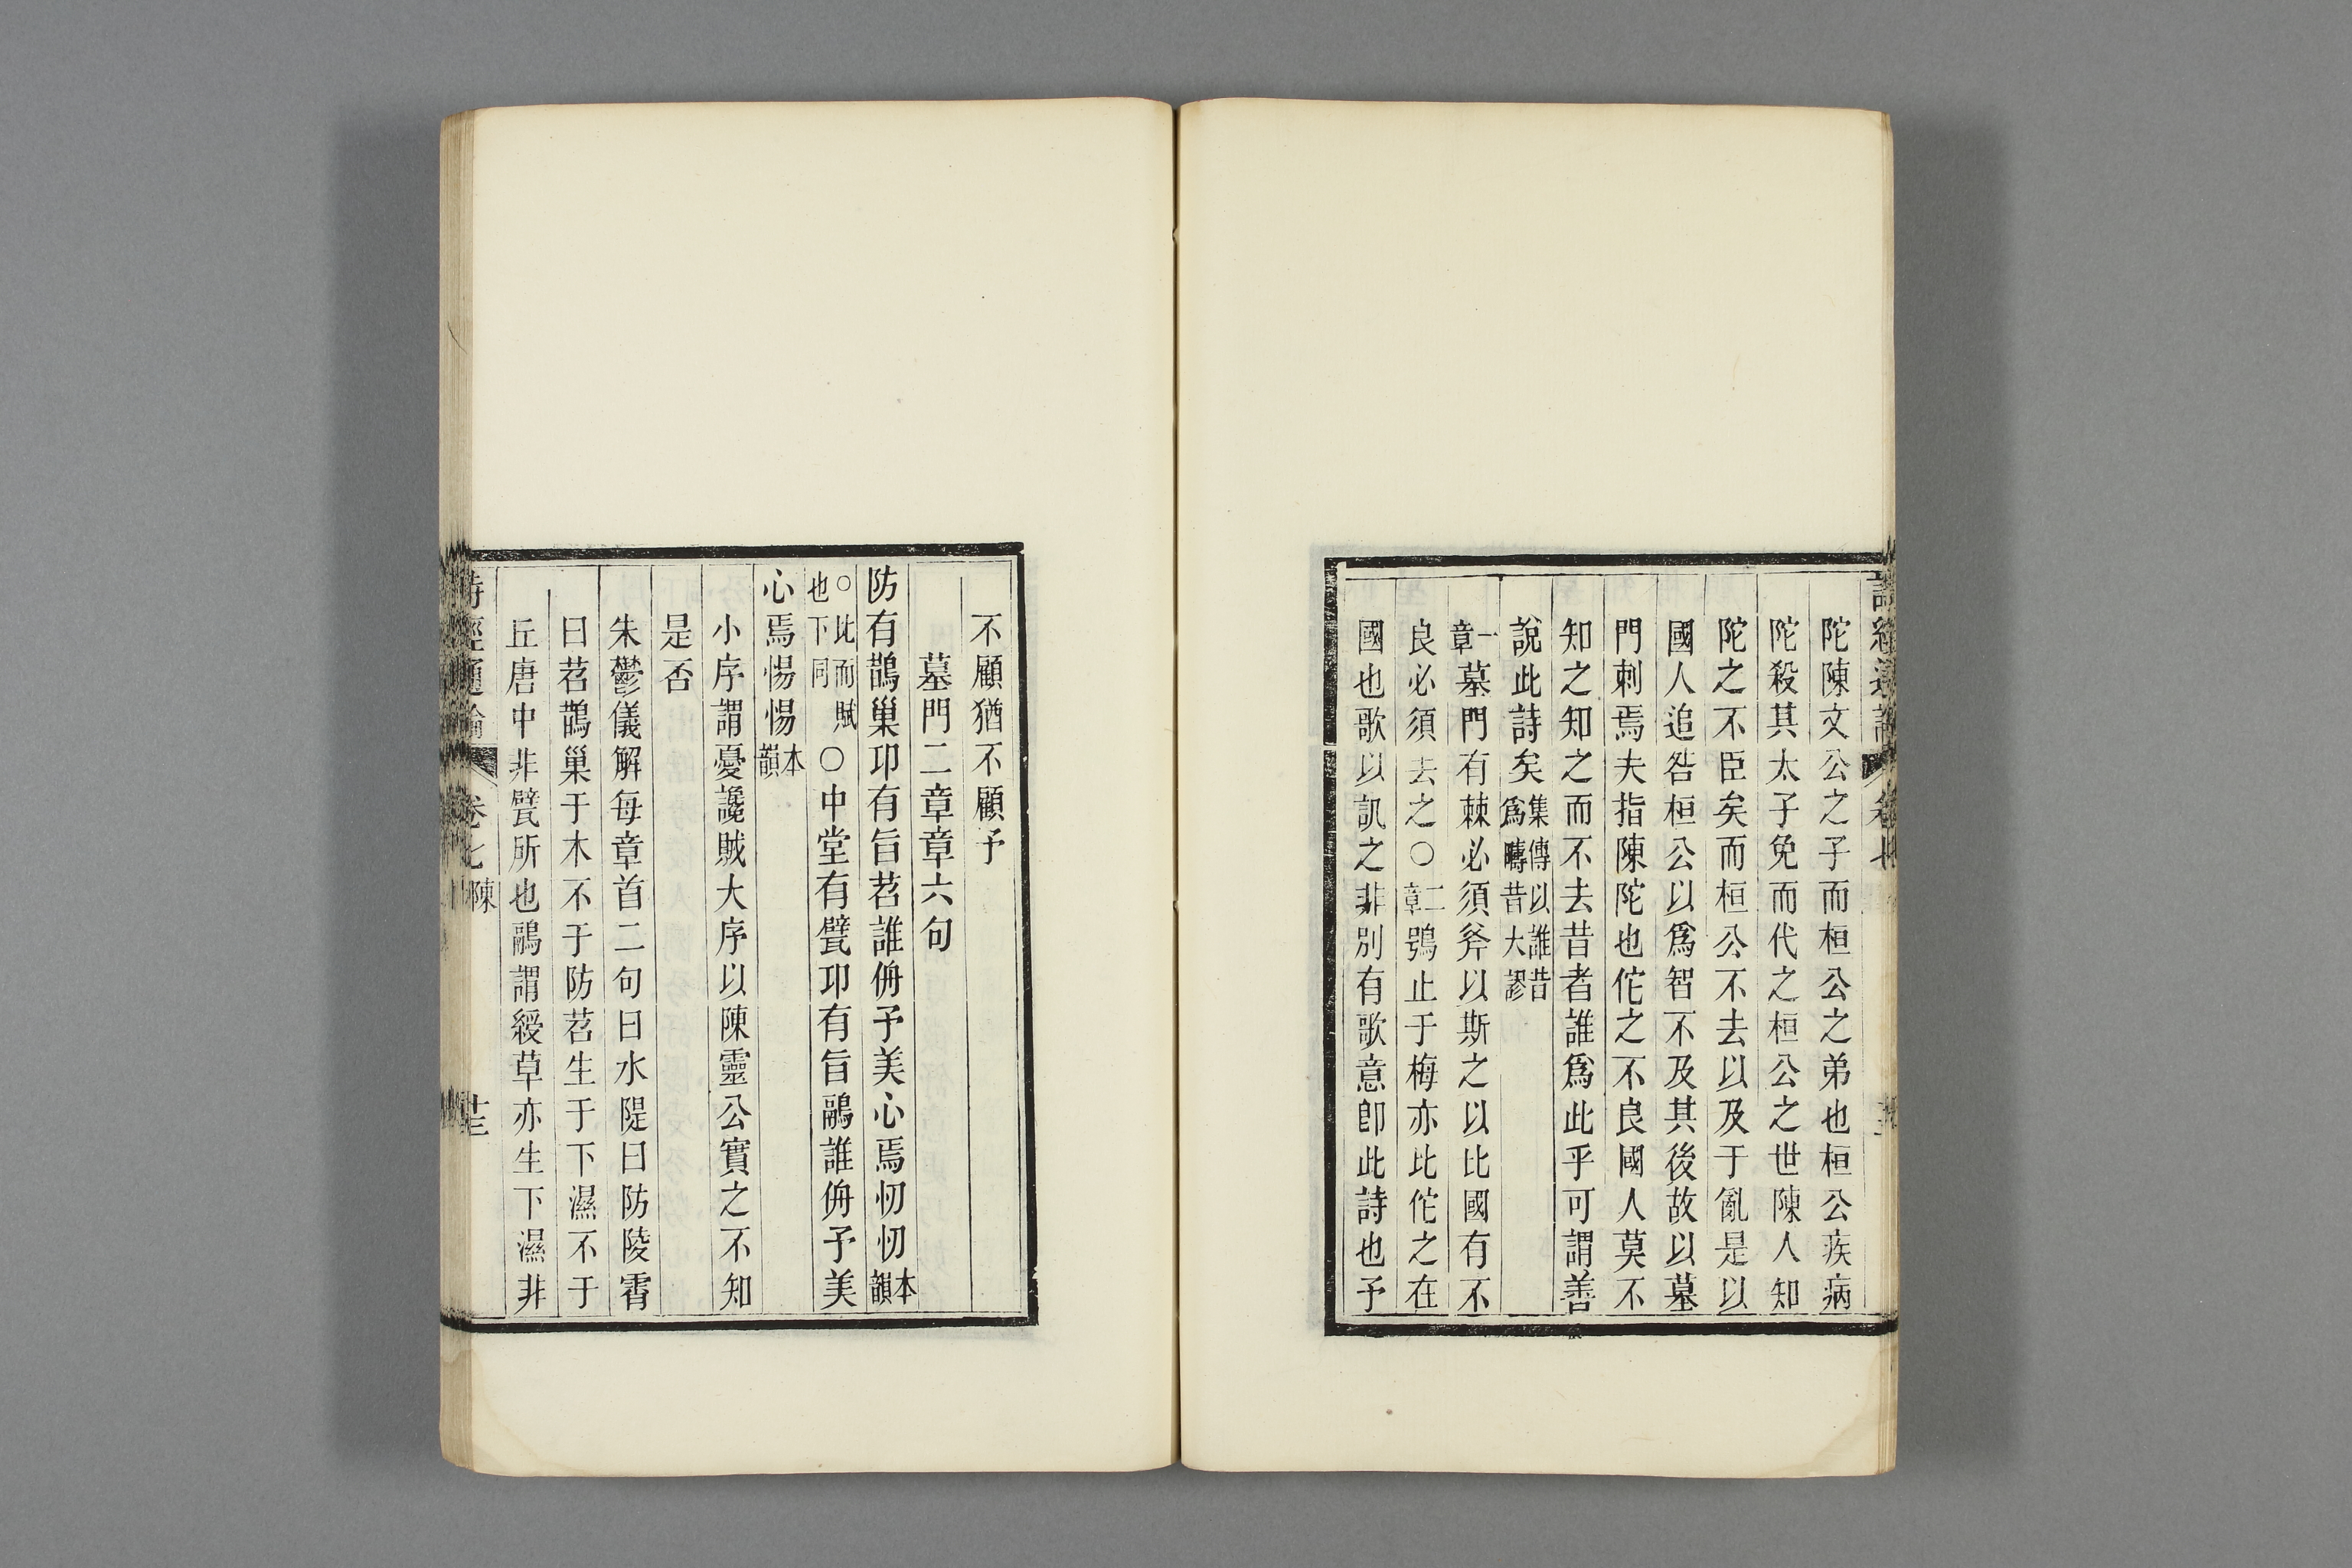 陀陳文公之子而桓公之弟也桓公疾病
陀殺其太子免而代之桓公之世陳人知
陀之不臣矣而桓公不去以及于亂是以
國人追咎桓公以爲智不及其後故以墓
門刺焉夫指陳陀也佗之不良國人莫不
知之知之而不去昔者誰爲此乎可謂善
說此詩矣集傳以誰昔爲疇昔大謬
一章墓門有棘必須斧以斯之以比國有不
良必須去之○二章鴞止于梅亦比佗之在
國也歌以訊之非別有歌意卽此詩也予
不顧猶不顧予
墓門二章章六句
防有鵲巢卭有旨苕誰侜予美心焉忉忉本韻
○比而賦也下同○中堂有甓卭有旨鷊誰侜予美
心焉惕惕本韻
小序謂憂讒賊大序以陳靈公實之不知
是否
朱鬱儀解每章首二句曰水隄曰防陵霄
曰苕鵲巢于木不于防苕生于下濕不于
丘唐中非甓所也鷊謂綬草亦生下濕非
詩經通論 卷七陳